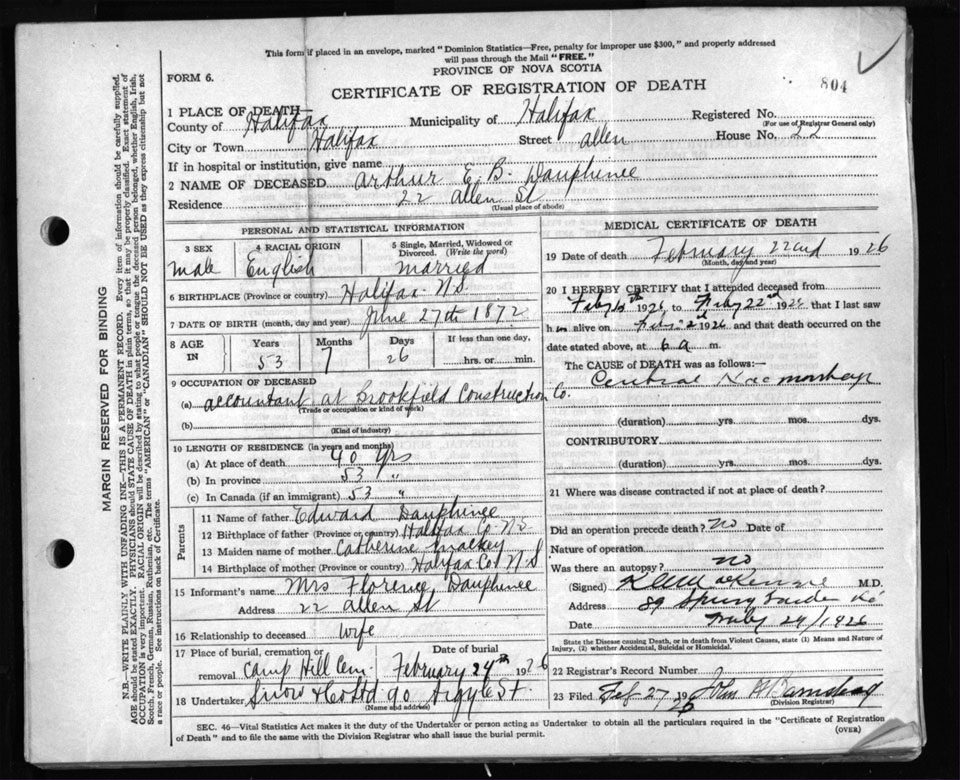 This form if placed in an envelope, marked "Dominion Statistics—Free, penalty for improper use $300," and properly addressed
will pass through the Mail "FREE."
PROVINCE OF NOVA SCOTIA
FORM 6.
804
CERTIFICATE OF REGISTRATION OF DEATH
1 PLACE OF DEATH—
County of Halifax Municipality of Halifax Registered No.
(For use of Registrar General only)
City or Town Halifax Street Allen House No. 22
If in hospital or institution, give name
2 NAME OF DECEASED Arthur E. B. Dauphinee
Residence 22 Allen St
(Usual place of abode)
PERSONAL AND STATISTICAL INFORMATION
3 SEX 4 RACIAL ORIGIN 5 Single, Married, Widowed or Divorced. (Write the word)
male English married
6 BIRTHPLACE (Province or country) Halifax N.S.
7 DATE OF BIRTH (month, day and year) June 27th 1872
8 AGE IN Years Months Days If less than one day,
53 7 26 hrs. or min.
9 OCCUPATION OF DECEASED
(a) accountant at Brookfield Construction Co.
(Trade or occupation or kind of work)
(b)
(Kind of industry)
10 LENGTH OF RESIDENCE (in years and months)
(a) At place of death 40 yrs
(b) In province 53 "
(c) In Canada (if an immigrant) 53 "
Parents
11 Name of father Edward Dauphinee
12 Birthplace of father (Province or country) Halifax Co. N.S.
13 Maiden name of mother Catherine Mackey
14 Birthplace of mother (Province or country) Halifax Co. N.S
15 Informant's name Mrs Florence Dauphinee
Address 22 Allen St
16 Relationship to deceased wife
17 Place of burial, cremation or removal Date of burial
Camp Hill Cem. February 24th 1926
18 Undertaker Snow & Co Ltd 90 Argyle St.
(Name and address)
MEDICAL CERTIFICATE OF DEATH
19 Date of death February 22nd 1926
(Month, day and year)
20 I HEREBY CERTIFY that I attended deceased from
1926, to Feby 22nd 1926 that I last saw
him alive on 1926 and that death occurred on the
date stated above, at 6 a m.
The CAUSE OF DEATH was as follows:
(duration) yrs. mos. dys.
CONTRIBUTORY
(duration) yrs. mos. dys.
21 Where was disease contracted if not at place of death?
Did an operation precede death? no Date of
Nature of operation
Was there an autopsy? no
(Signed) MacKenzie M.D.
Address 89 Spring Garden Rd
Date Feby 24/1926
State the Disease causing Death, or in death from Violent Causes, state (1) Means and Nature of
Injury, (2) whether Accidental, Suicidal or Homicidal.
22 Registrar's Record Number
23 Filed Feb 27 1926 John Barnstead
(Division Registrar)
SEC. 46—Vital Statistics Act makes it the duty of the Undertaker or person acting as Undertaker to obtain all the particulars required in the "Certificate of Registration
of Death" and to file the same with the Division Registrar who shall issue the burial permit.
(OVER)
MARGIN RESERVED FOR BINDING
N.B.—WRITE PLAINLY WITH UNFADING INK—THIS IS A PERMANENT RECORD. Every item of information should be carefully supplied.
AGE should be stated EXACTLY. PHYSICIANS should STATE CAUSE OF DEATH in plain terms, so that it may be properly classified. Exact statement of
OCCUPATION is very important. RACIAL ORIGIN will be described by stating to what people or tongue the deceased person belonged, whether English, Irish,
Scotch, French, German, Russian, Ruthenian, etc. The terms "AMERICAN" or "CANADIAN" SHOULD NOT BE USED as they express citizenship but not
a race or people. See instructions on back of Certificate.